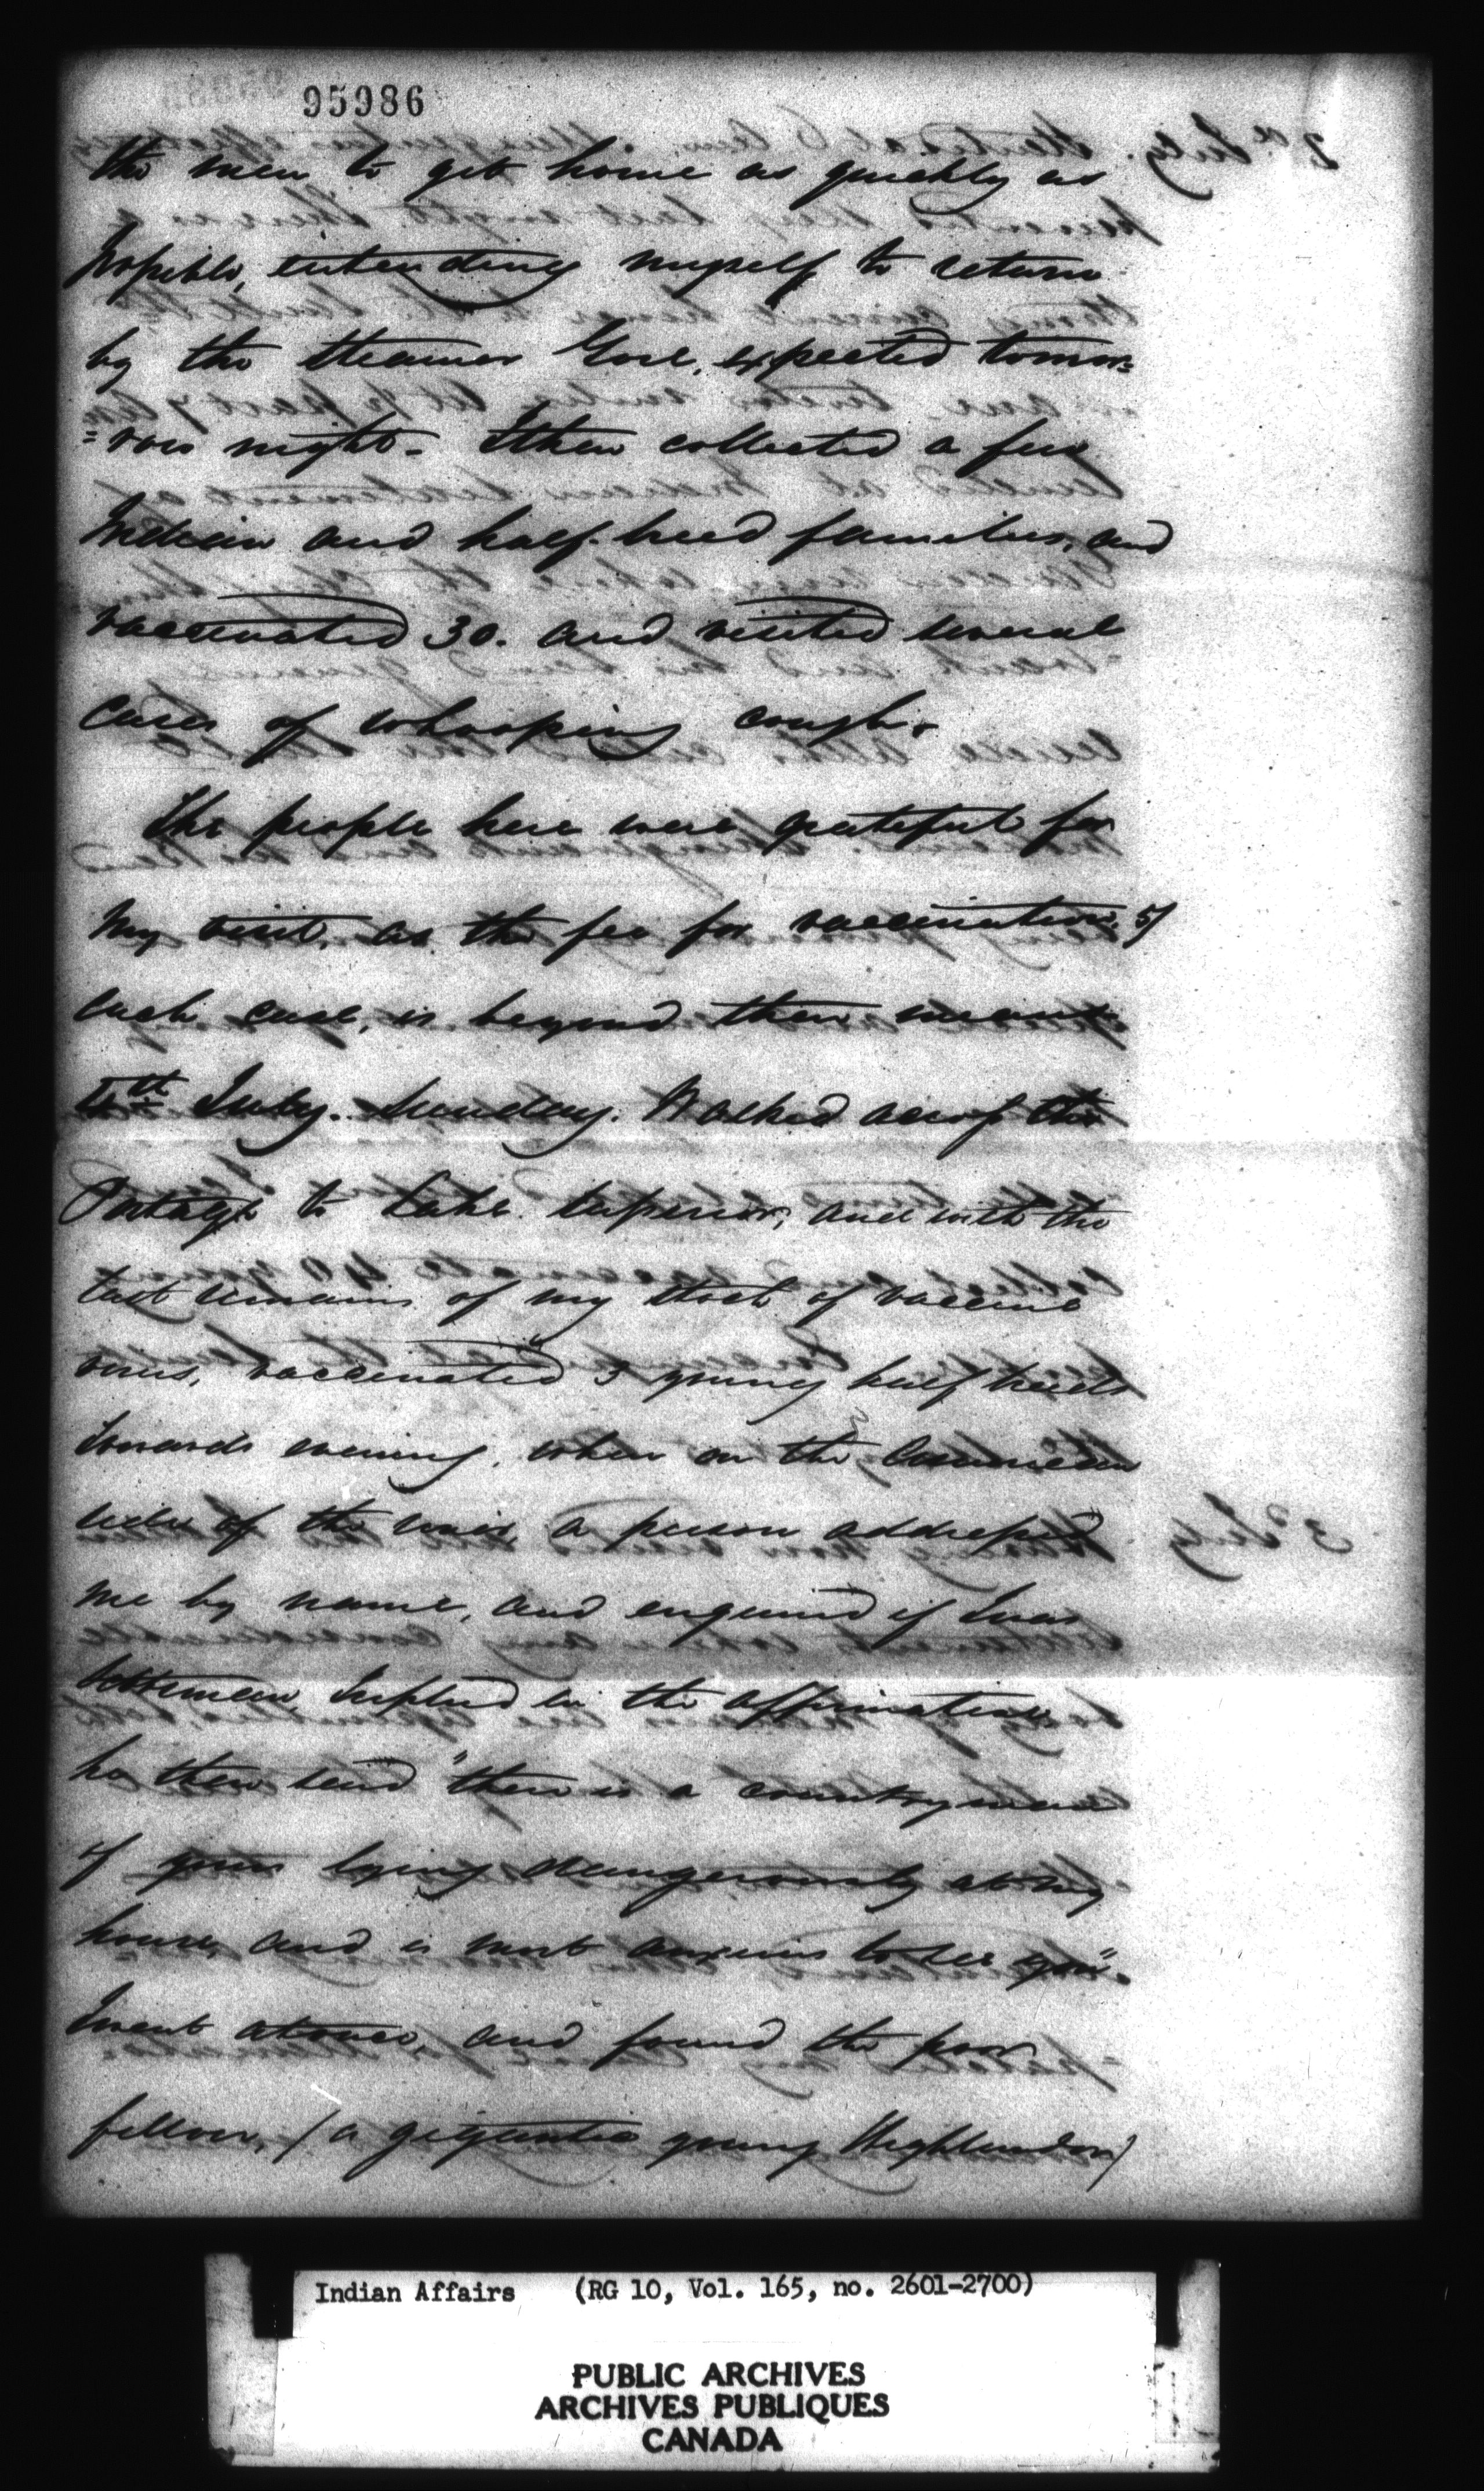 95986
the men to get home as quickly as
possible, intending myself to return
by the Steamer Gore, expected tomor=
=row night. I then collected a few
Indian and half-breed families, and
vaccinated 30. and visited several
cases of whooping cough.
The people here were grateful for
my visit, as the fee for vaccination, 5/
each case, is beyond their means
4th July. Sunday. Walked across the
Portage to Lake Superior, and with the
last remains of my stock of vaccine
virus, vaccinated 3 young half breeds
towards evening, when on the American
side of the river, a person addressed
me by name, and enquired if I was
I replied in the affirmative,
he then said "there is a countryman
of yours lying dangerously at my
house, and is most anxious to see you".
I went at once, and found the poor
fellow, (a gigantic young Highlander)
Indian Affairs (RG 10, Vol. 165, no. 2601-2700)
PUBLIC ARCHIVES
ARCHIVES PUBLIQUES
CANADA